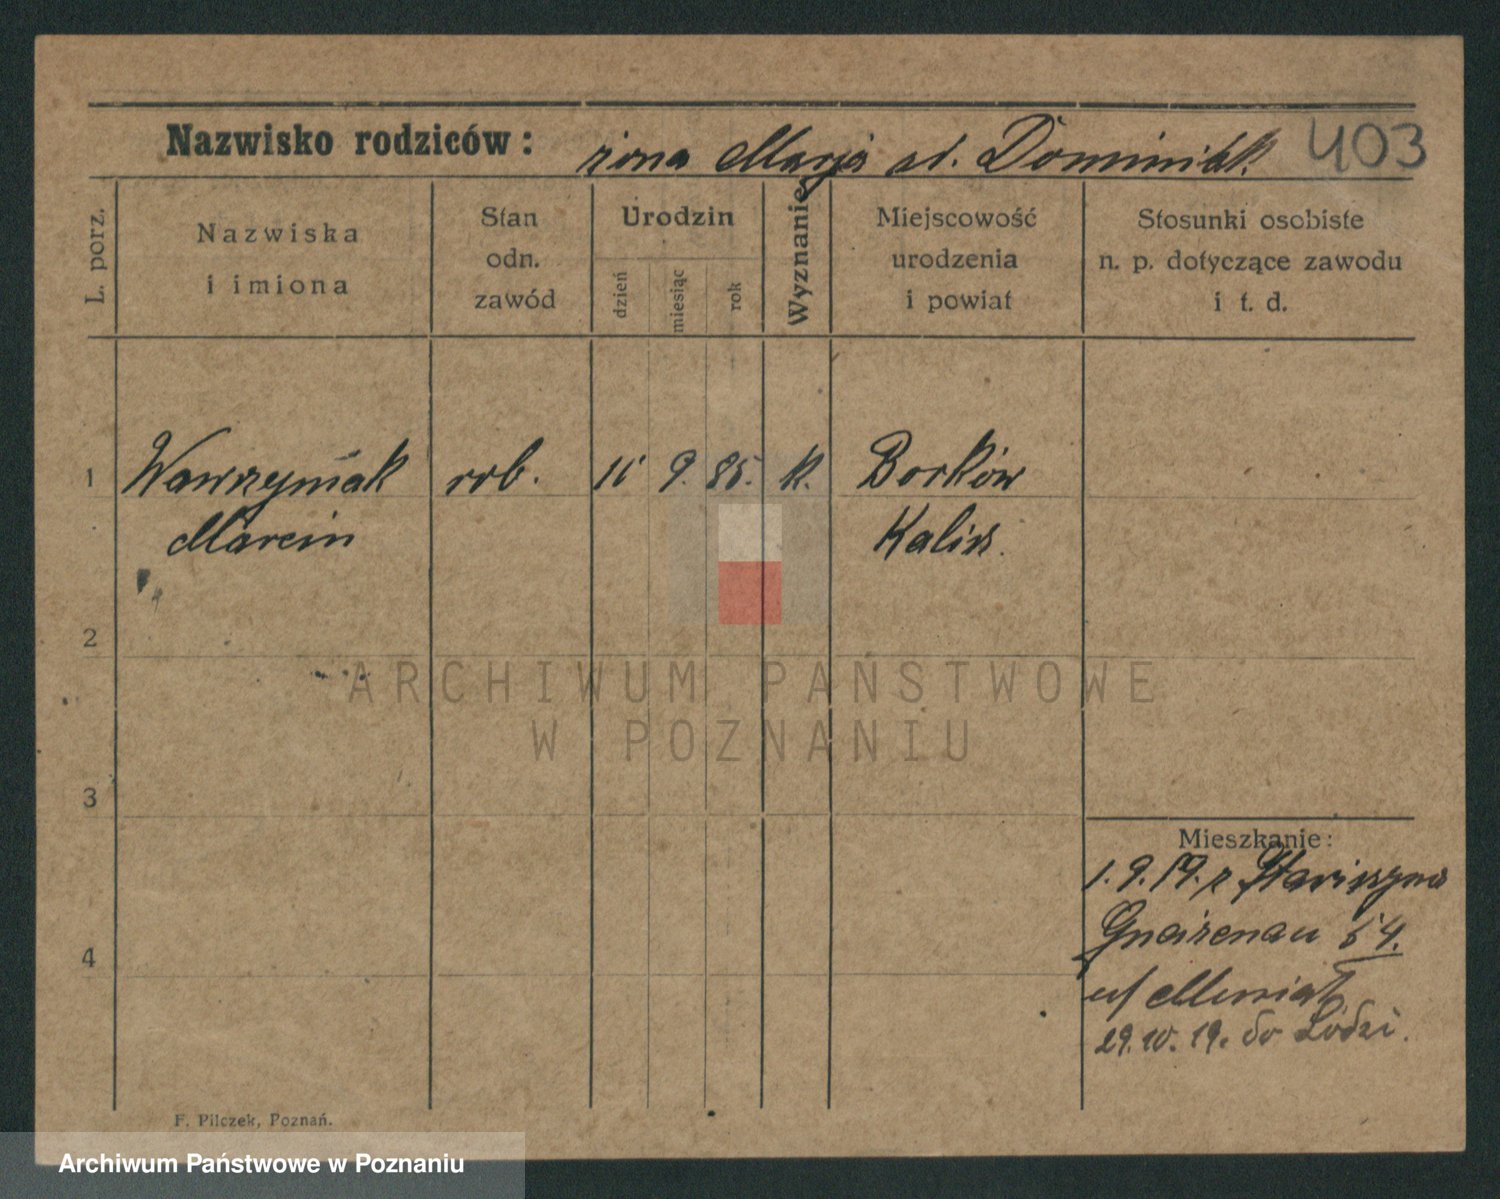 Nazwisko rodziców: żona Marja ul. Dominik. 403
L. porz.
Nazwiska
i imiona
Stan
odn.
zawód
Urodzin
dzień
miesiąc
rok
Wyznanie
Miejscowość
urodzenia
i powiat
Stosunki osobiste
n. p. dotyczące zawodu
i t. d.
1 Wawrzyniak rob. 11 9. 85. k. Borków
Marcin Kalisz.
2
3
4
Mieszkanie:
1.9.19. z Stawiszyna
Gnaizenau 54.
u/
29.10.19. do Łodzi.
F. Pilczek, Poznań.
ARCHIWUM PAŃSTWOWE
W POZNANIU
Archiwum Państwowe w Poznaniu